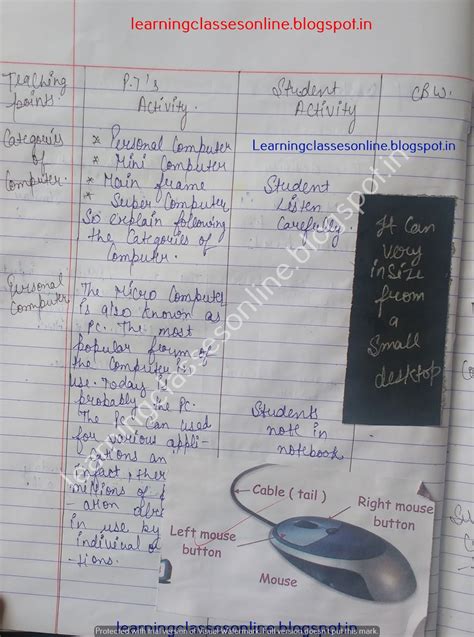 learningclassesonline.blogspot.in
Teaching
points.
P.T's
Activity.
Student
Activity
C B W.
Categories
of
Computer.
* Personal Computer
* Mini Computer
* Main frame
* Super Computer
So explain following
the Categories of
Computer.
Learningclassesonline.blogspot.in
Student
Listen
Carefully.
It Can
very
in size
from
a
Small
desktop
Personal
Computer
The Micro Computer
is also known as
PC. The most
popular form of
the Computer in
use. Today is
probably the PC.
The PC Can used
for various appli-
cations an
infact, ther
millions of
-ation
in use by
individual
-tions.
Students
note in
notebook
Cable ( tail )
Right mouse
button
Left mouse
button
Mouse
learningclassesonline.blogspot.in
learningclassesonline.blogspot.in
Protected with trial version of Visual Watermark. Full version doesn't put this mark.